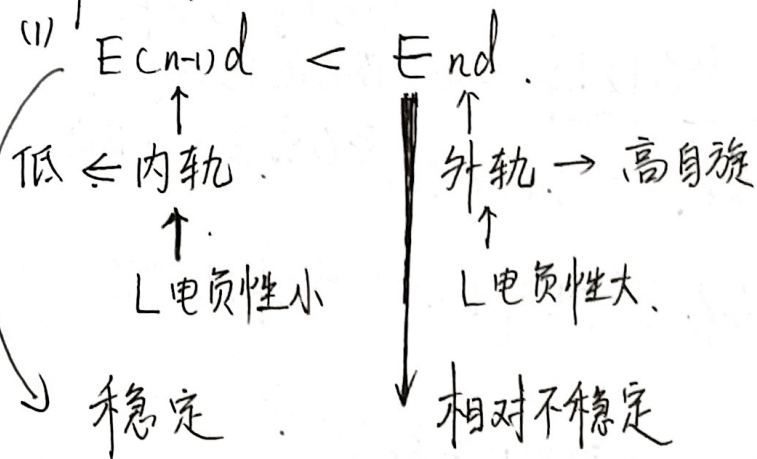 (1) E(n-1)d < End.
↑ ↑
低 ← 内轨. 外轨. → 高自旋
↑. ↑
L电负性小 L电负性大、
稳定. 相对不稳定